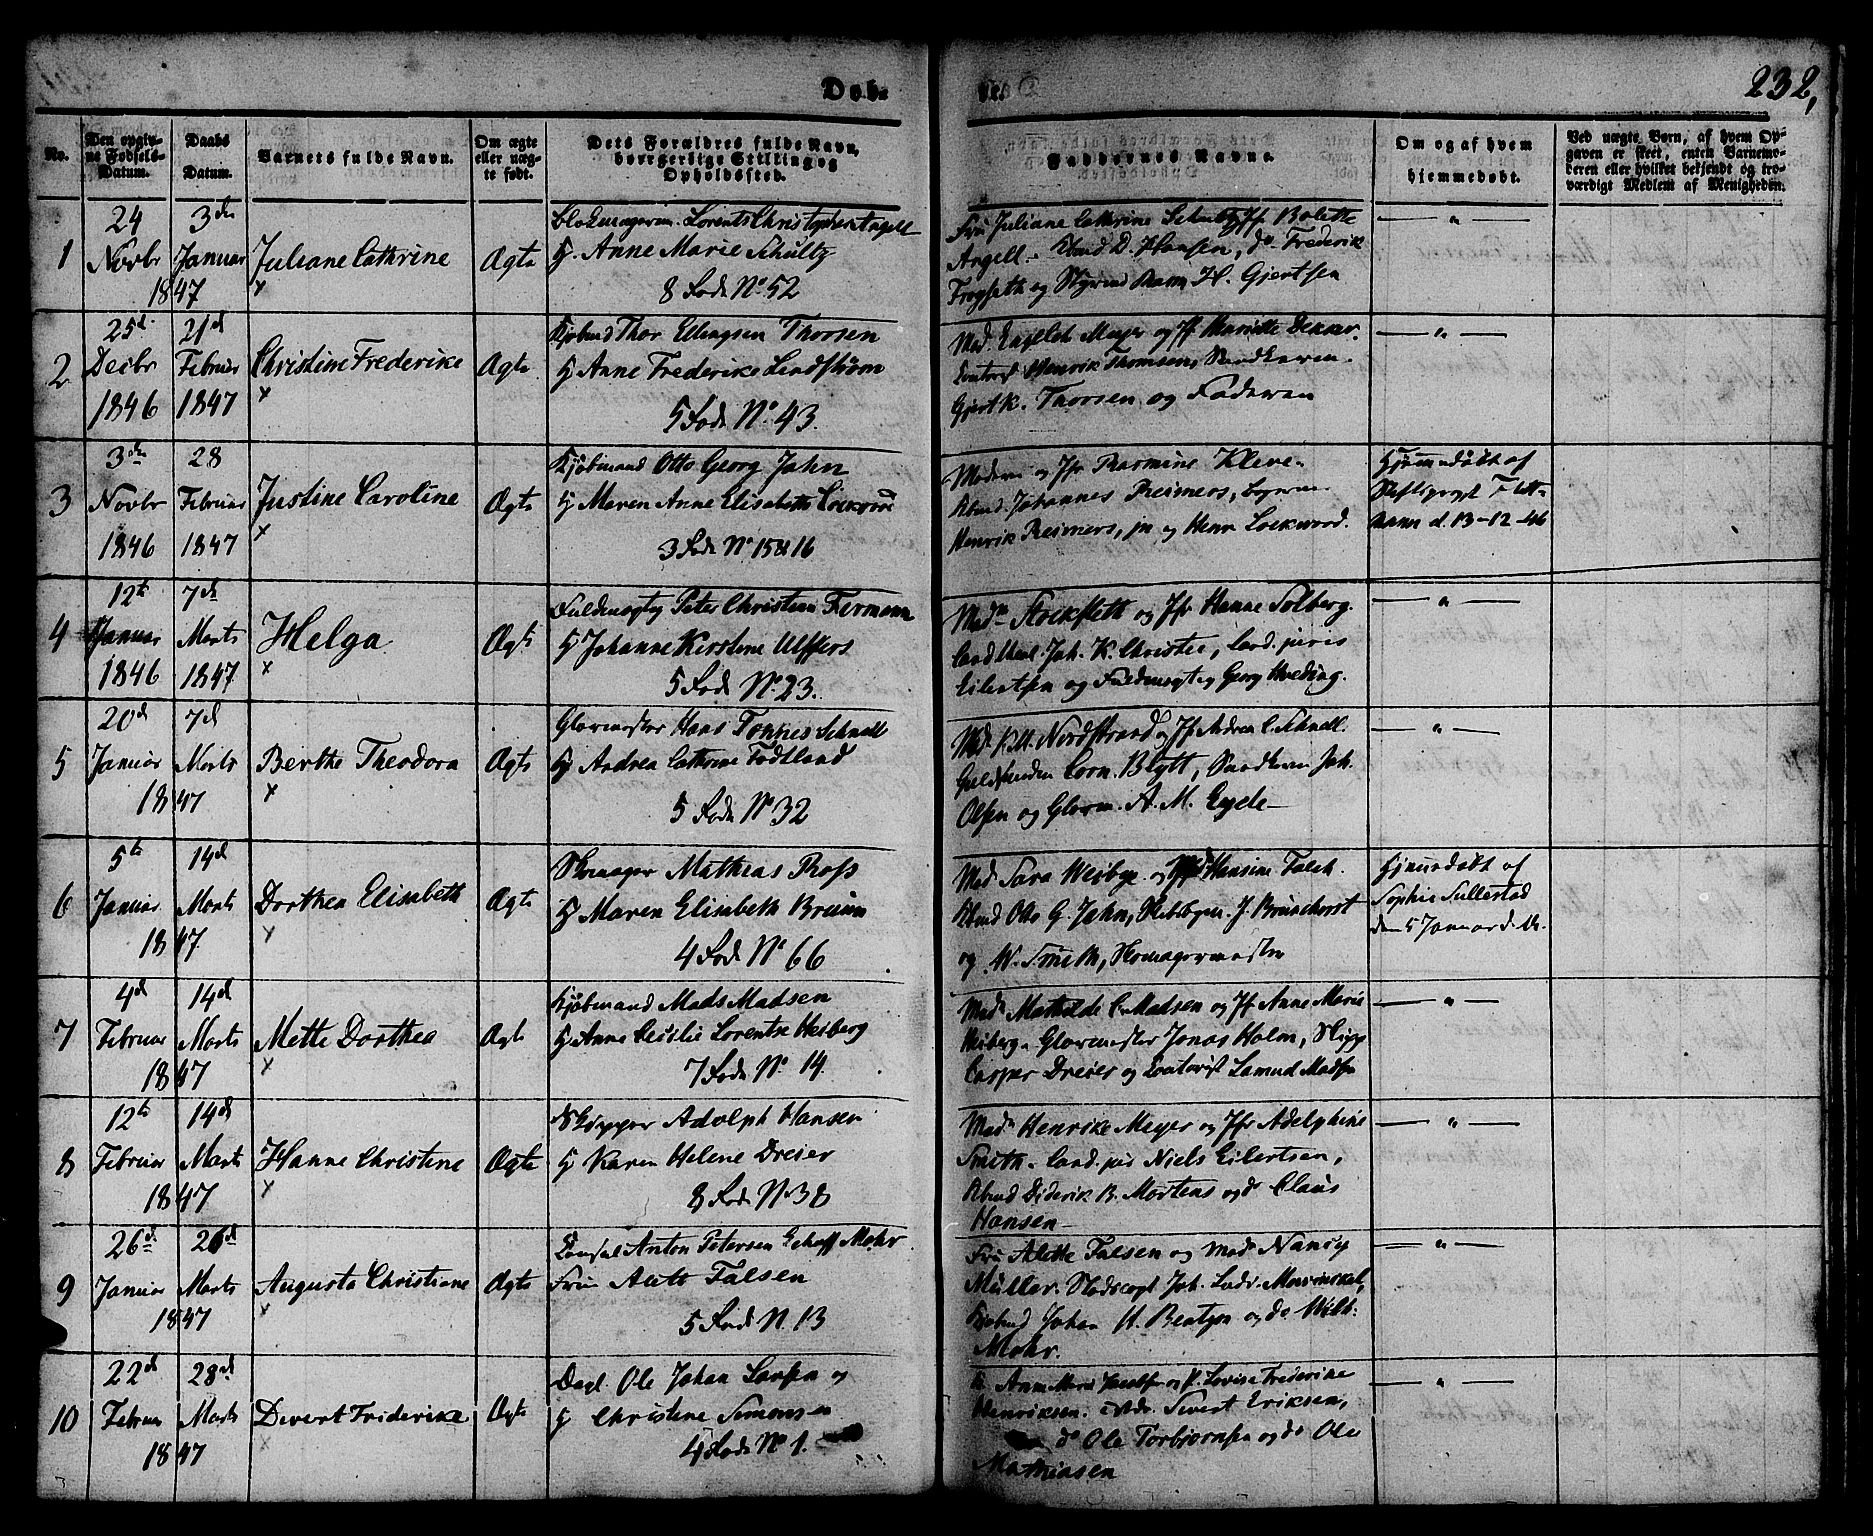 Døb-
te.
232,
No.
Den opgivne Fødsels-Datum.
Daabs Datum.
Varnets fulde Navn.
Om ægte eller uægte født.
Dets Forældres fulde Navn, borgerlige Stilling og Opholdssted.
Faddernes Navne.
Om og af hvem hjemmedøbt.
Ved uægte Børn, af hvem Opgaven er skeet, enten Barnemoderen eller hvilket bekjendt og troværdigt Medlem af Menigheden.
1
24 Novbr
3die Januar
1847
Juliane Cathrine
x
Ægte
Blokmageren Lorents Christopher Angell
H. Anne Marie Schultz
8 Rode No. 52
Fru Juliane Cathrine Schultz Jfr Bolette
Angell - Kbmd D. Hansen, do Frederik
Frogseth og Styrmd H. Gjertsen
— " —
2
25d Decbr 1846
21d Februar 1847
Christine Frederike
x
Ægte
Kjøbmd Thor Ellingsen Thorsen
H Anne Frederike Lindstrøm
5 Rode No 43.
Mad Meyer og Jfr Henriette Dekker.
Contorst Henrik Thomsen, Snedkeren
Gjert K. Thorsen og Faderen
— " —
3
3die Novbr 1846
28 Februar 1847
Justine Caroline
x
Ægte
Kjøbmand Otto Georg Jahn
H Maren Anne Elisabeth Lockwood
3 Rode No 15 & 16
Moderen og Jfr Kleve-
Kbmd. Johannes Reimers,
Henrik Reimers, jn og Henr Lockwood.
Hjemmedøbt af
Stiftsprovst
d. 13-12-46
4
12te Januar 1846
7de Marts 1847
Helga
x
Ægte
Fuldmægtig Peter Christian Fermann
H Johanne Kirstine Ulffers
5 Rode No. 23.
Madm Stockfleth og Jfr Hanne Solberg.
Cand theol. Joh. K. Christie, Cand. juris
Eilertsen og Fuldmægtig Georg Hveding.
— " —
5
20d Januar
7d Marts
1847
Berthe Theodora
x
Ægte
Glarmester Hans Tønnes Schnell
H Andrea Cathrine Fodtland
5 Rode No 32
Mad Nordstrand og Jfr Andrea C. Schnell.
Guldsmeden Corn. Blytt, Snedkeren Joh.
Olsen og Glarm. A. M. Eyde
— " —
6
5te Januar
14d Marts
1847
Dorthea Elisabeth
x
Ægte
Skomager Mathias Pross
H Maren Elisabeth Bruun
4 Rode No 66
Mad Sara Weibye og Hansine Falch.
Kbmd Otto G. Jahn, Skibsbygm. J. Brunchorst
og W. Smith, Skomagermester
Hjemmedøbt af
Sophie Sullestad
den 5 Januar d. A.
7
4d Februar
14d Marts
1847
Mette Dorthea
x
Ægte
Kjøbmand Mads Madsen
H Anne Cecilie Lorentze Wesberg
7 Rode No 14
Mad Mathilde C. Madsen og Jfr Anne Marie
Wesberg - Glarmester Jonas Holm, Skipp
Casper Dreier og Contorist Samuel Madsen
— " —
8
12te Februar
14d Marts
1847
Hanne Christine
x
Ægte
Skipper Adolph Hansen
H Karen Helene Dreier
8 Rode No 38
Mad Henrike Meyer og Jfr Adelphine
Smith - Cand. jur Niels Eilertsen,
Kbmd Diderik B. Mortens og do Claus
Hansen
— " —
9
26d Januar
26d Marts
1847
Augusta Christiane
x
Ægte
Consul Anton Petersen Mohr
Frue Alette Falsen
5 Rode N. 13
Fru Alette Falsen og Mad Nancy
Müller. Stadscapt Joh. Ludv. Mowinckel,
Kjøbmd Johan H. Bentzon og do Wilh:
Mohr.
— " —
10
22d Februar
28d Marts
1847
Divert Friderike
x
Ægte
Dagl. Ole Johan Larsen og
H Christine Simonsen
4 Rode No 1.
K. Anne Marie Jacobsen og P. Lovise Frederike
Henriksen. Arbdr. Sivert Eriksen,
do Ole Torbjørnsen og do Ole
Mathiasen
— " —